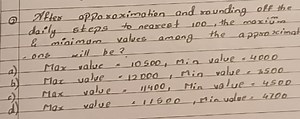 ② After approximation and rounding off the
daily steps to nearest 100, the maxium
& minimum values among the approximat
-ons will be?
a) Max value = 10500, Min value = 4000
b) Max value = 12000, Min value = 3500
c) Max value = 11400, Min value = 4500
d) Max value = 11500, Min value = 4700